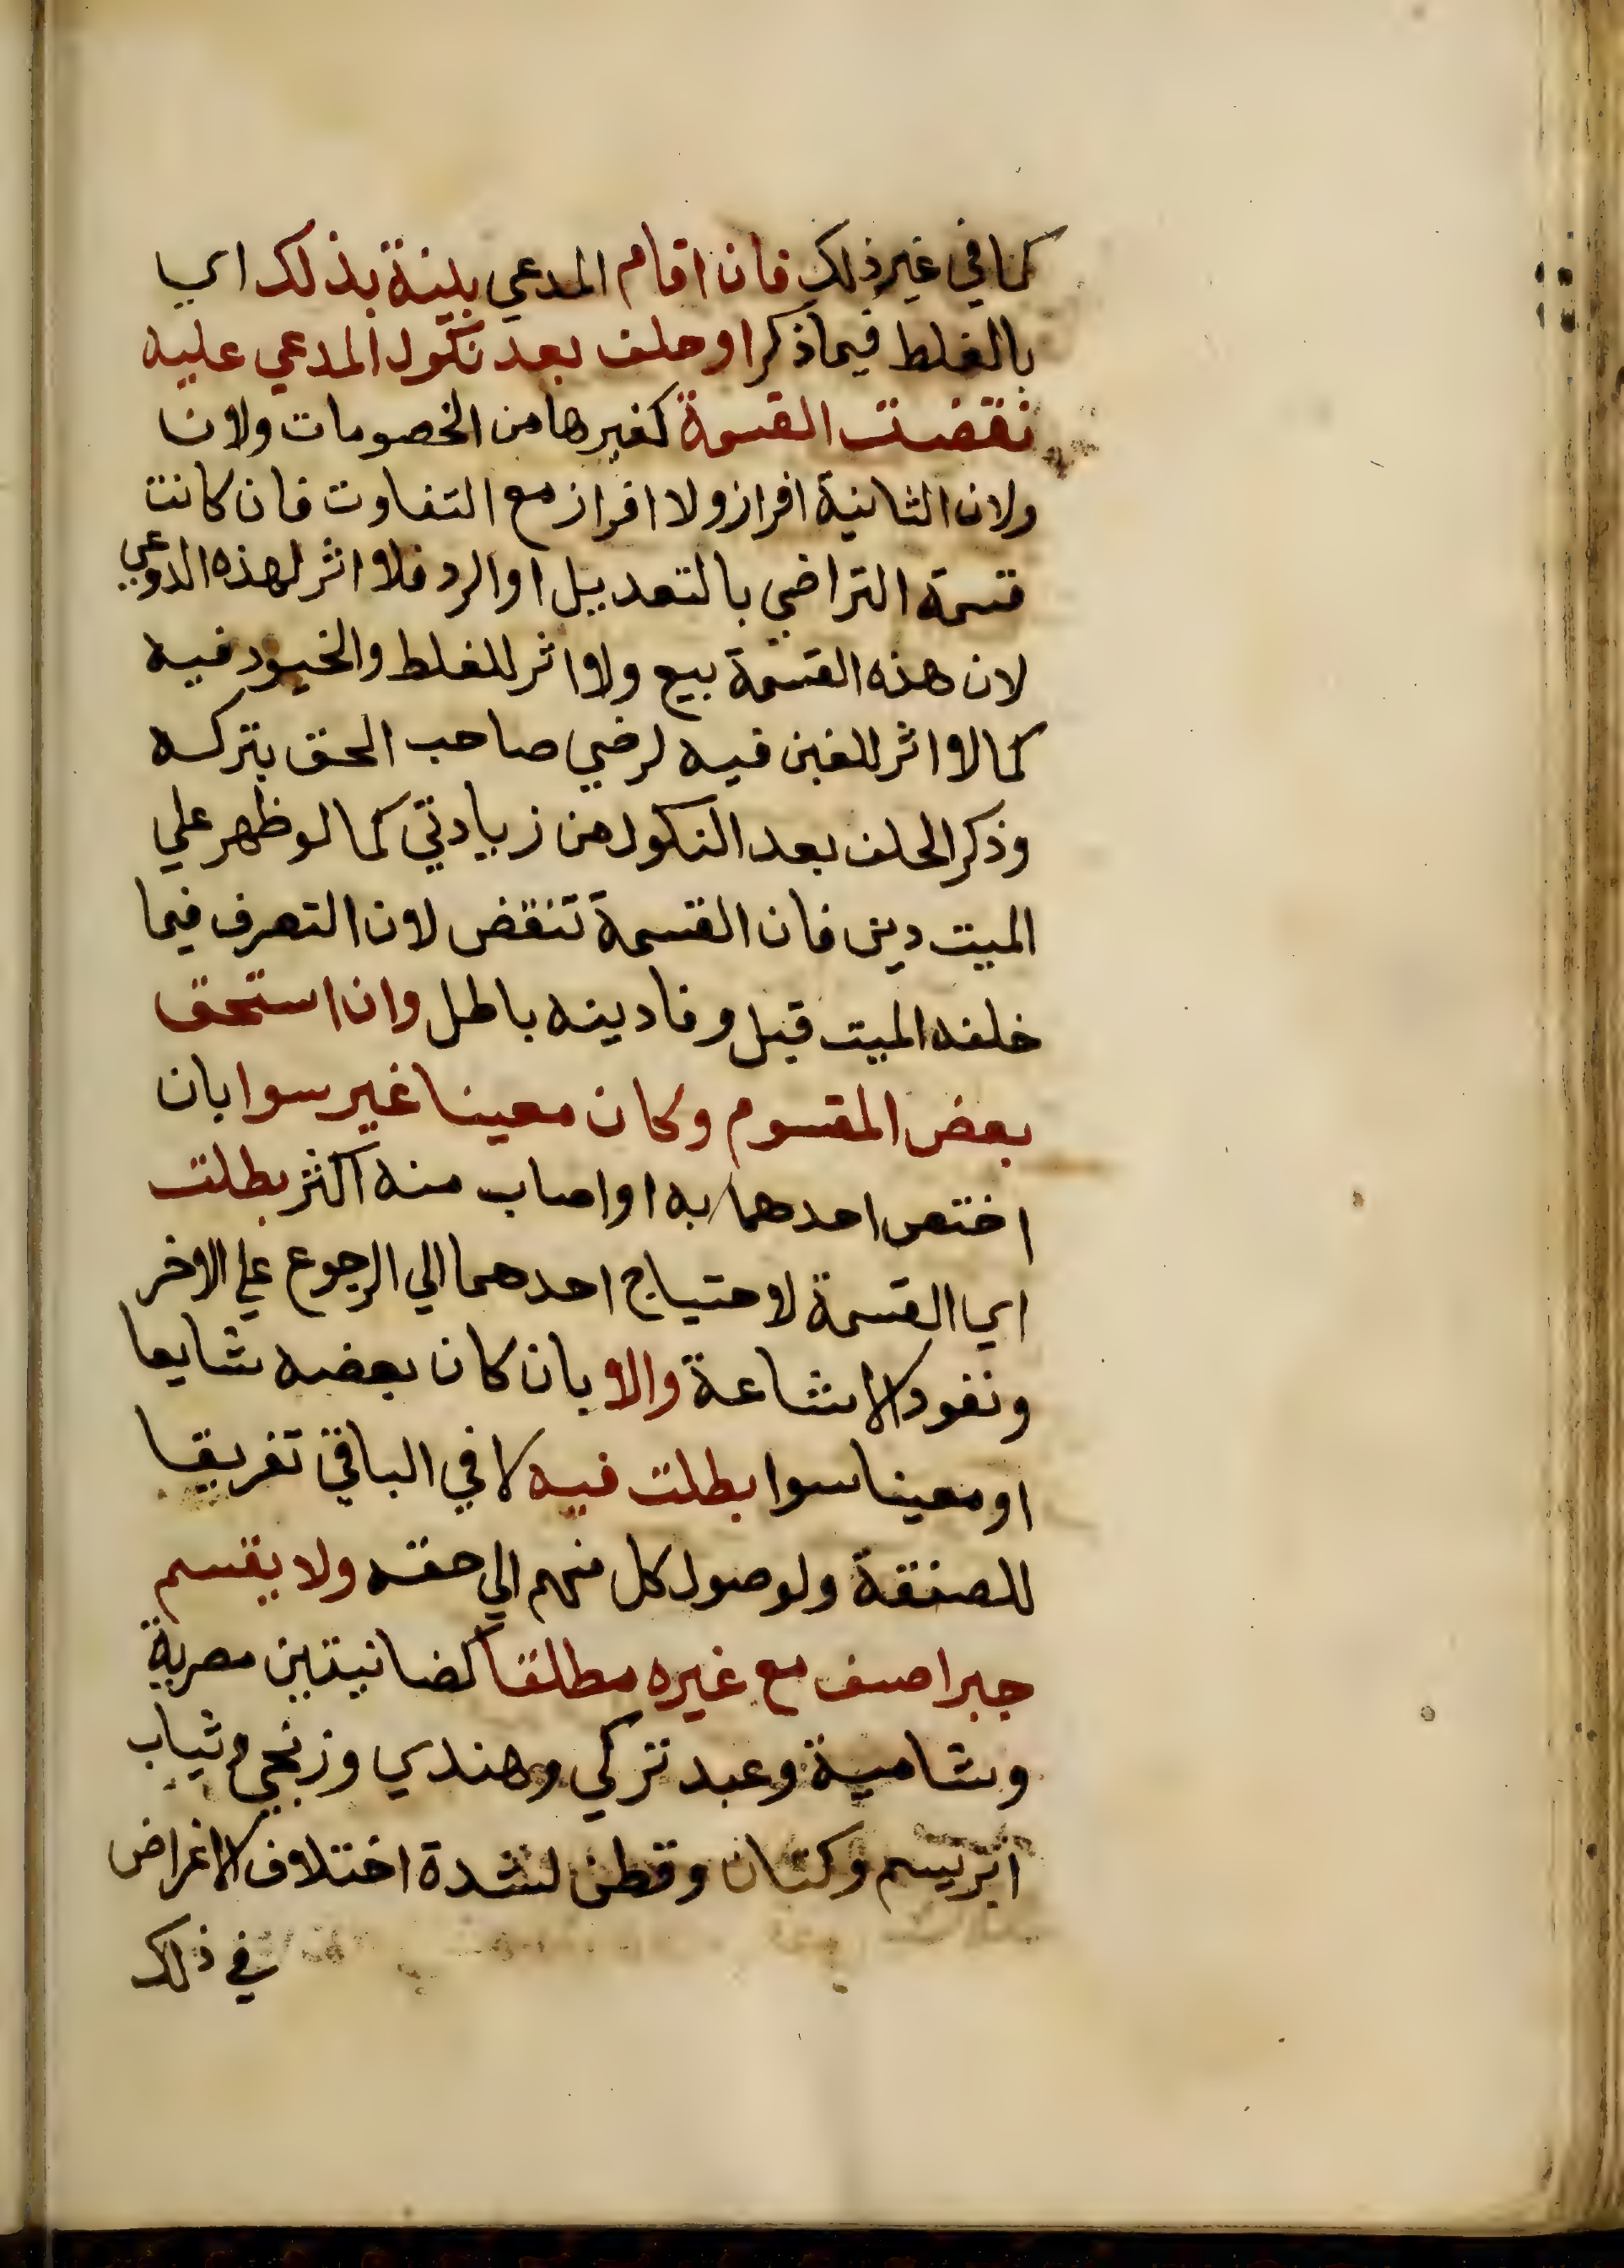 كما في غير ذلك فان اقام المدعي بينة بذلك اي
بالغلط فيما ذكر او حلف بعد نكول المدعي عليه
نقضت القسمة كغيرها من الخصومات ولان
ولان الثانية افراز ولا افراز مع التفاوت فان كانت
قسمة التراضي بالتعديل او الرد فلا اثر لهذه الدوعي
لان هذه القسمة بيع ولا اثر للغلط والحيود فيه
كما لا اثر للغبن فيه لرضي صاحب الحق بتركه
وذكر الحلف بعد النكول من زيادتي كما لو ظهر علي
الميت دين فان القسمة تنقض لان التصرف فيما
خلفه الميت قبل وفا دينه باطل وان استحق
بعض المقسوم وكان معينا غير سوا بان
اختص احدهما به او اصاب منه اكثر بطلت
اي القسمة لاحتياج احدهما الي الرجوع علي الاخر
ونفود الاشاعة والا بان كان بعضه شايعا
او معينا سوا بطلت فيه لا في الباقي تفريقا
للصفقة ولوصول كل منهم الي حقه ولا يقسم
جبرا صنف مع غيره مطلقا كضانيتين مصرية
وشامية وعبد تركي وهندي وزنجي وثياب
ابريسم وكتان وقطن لشدة اختلاف الاغراض
في ذلك